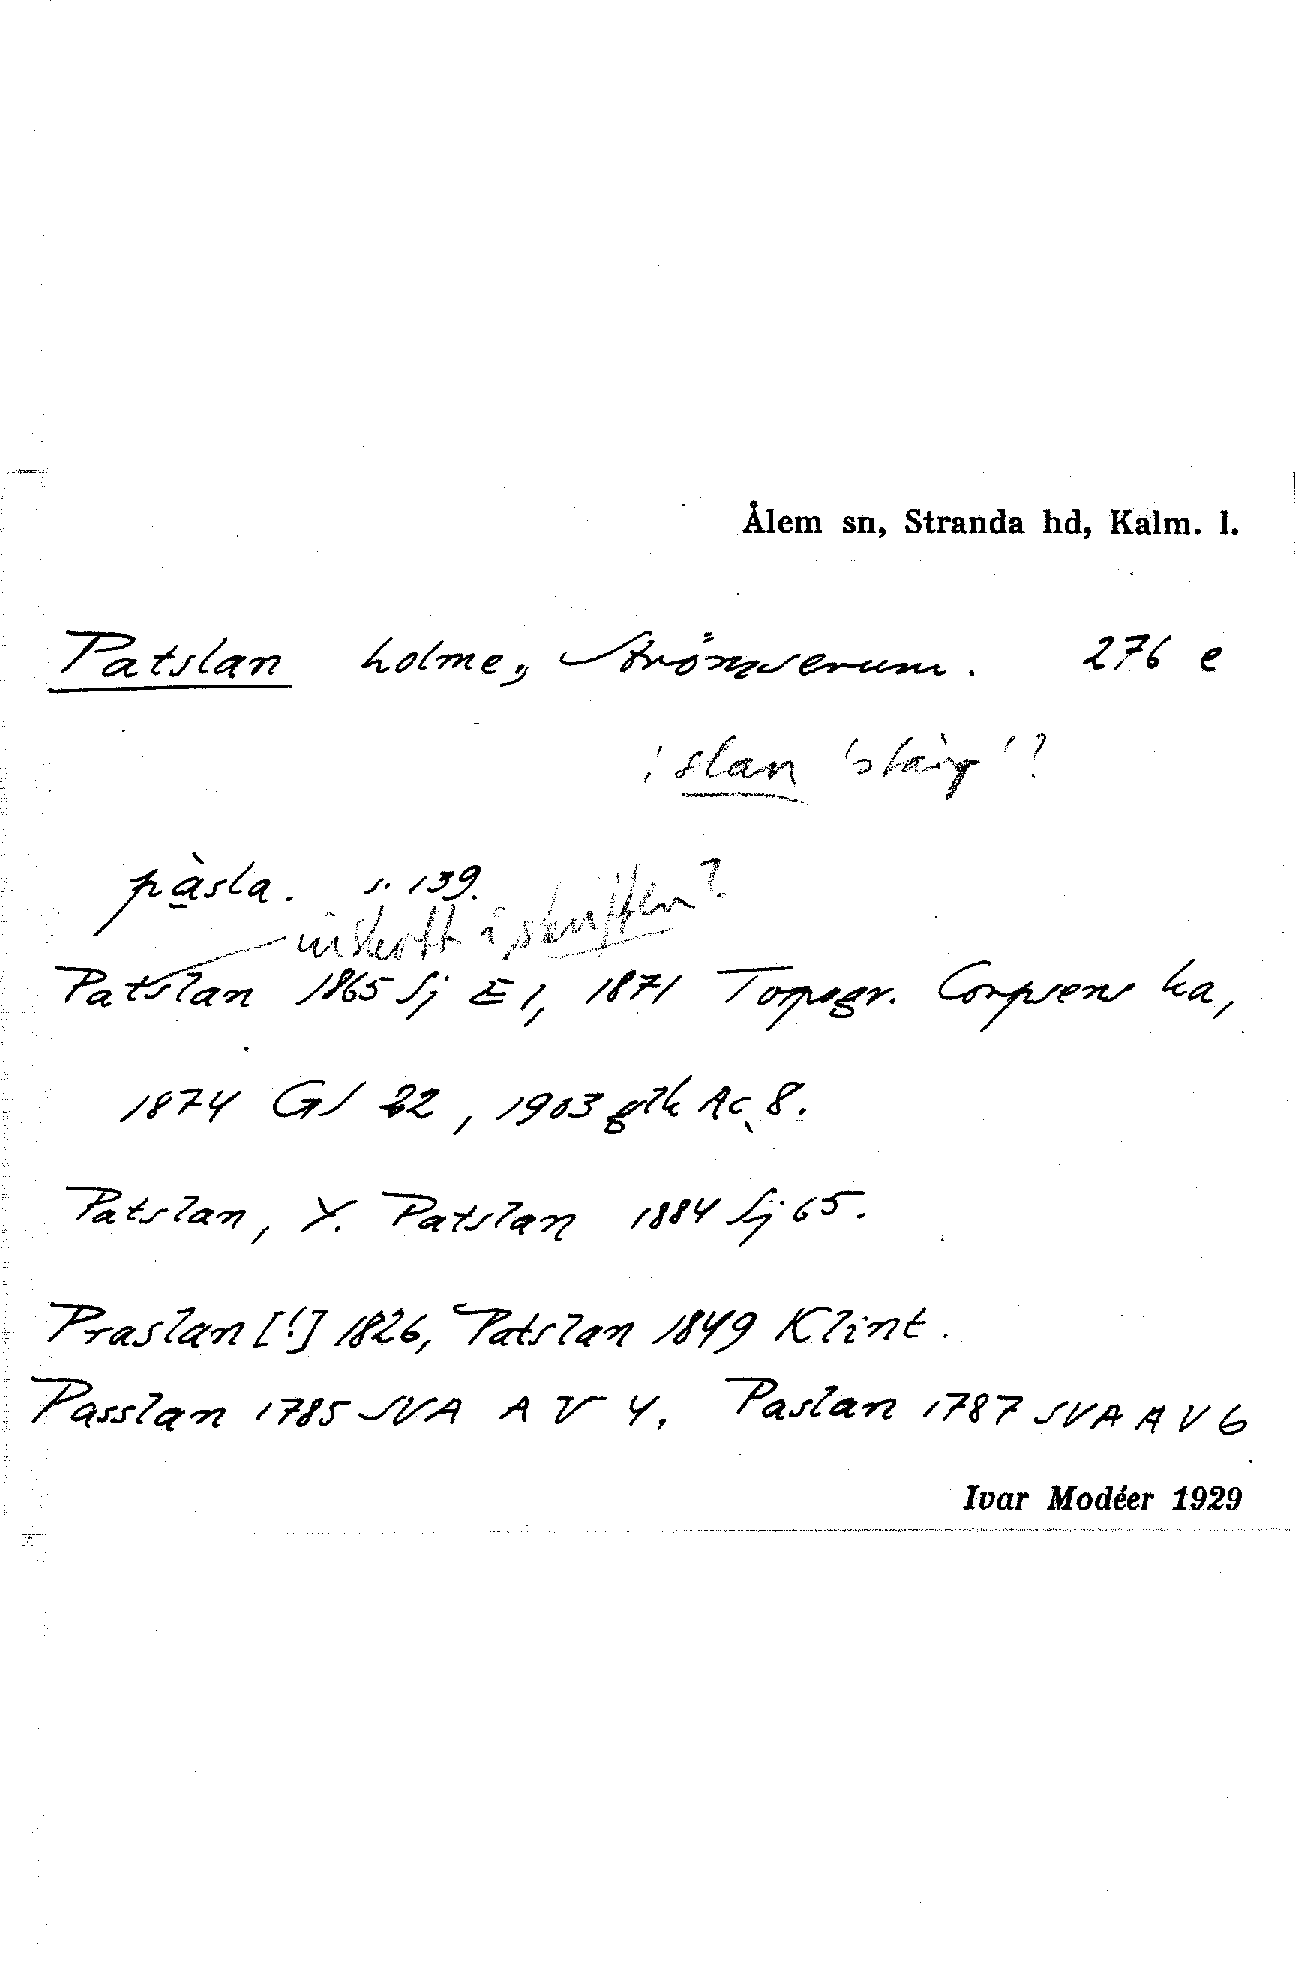 Ålem sn, Stranda hd, Kalm. l.
Patslan holme, Strömserum. 276 e
: slan 'stång'?
pàsla. s. 139.
inskott i skriften?
Patslan 1865 Sj E 1, 1871 Topogr. Corpsens ka,
1874 GS 22, 1903 gtk Ac 8.
Patslan, Y. Patslan 1884 Sj 65.
Praslan [!] 1826, Patslan 1849 Klint.
Passlan 1785 SVA A V 4. Paslan 1787 SVA A V 6
Ivar Modéer 1929